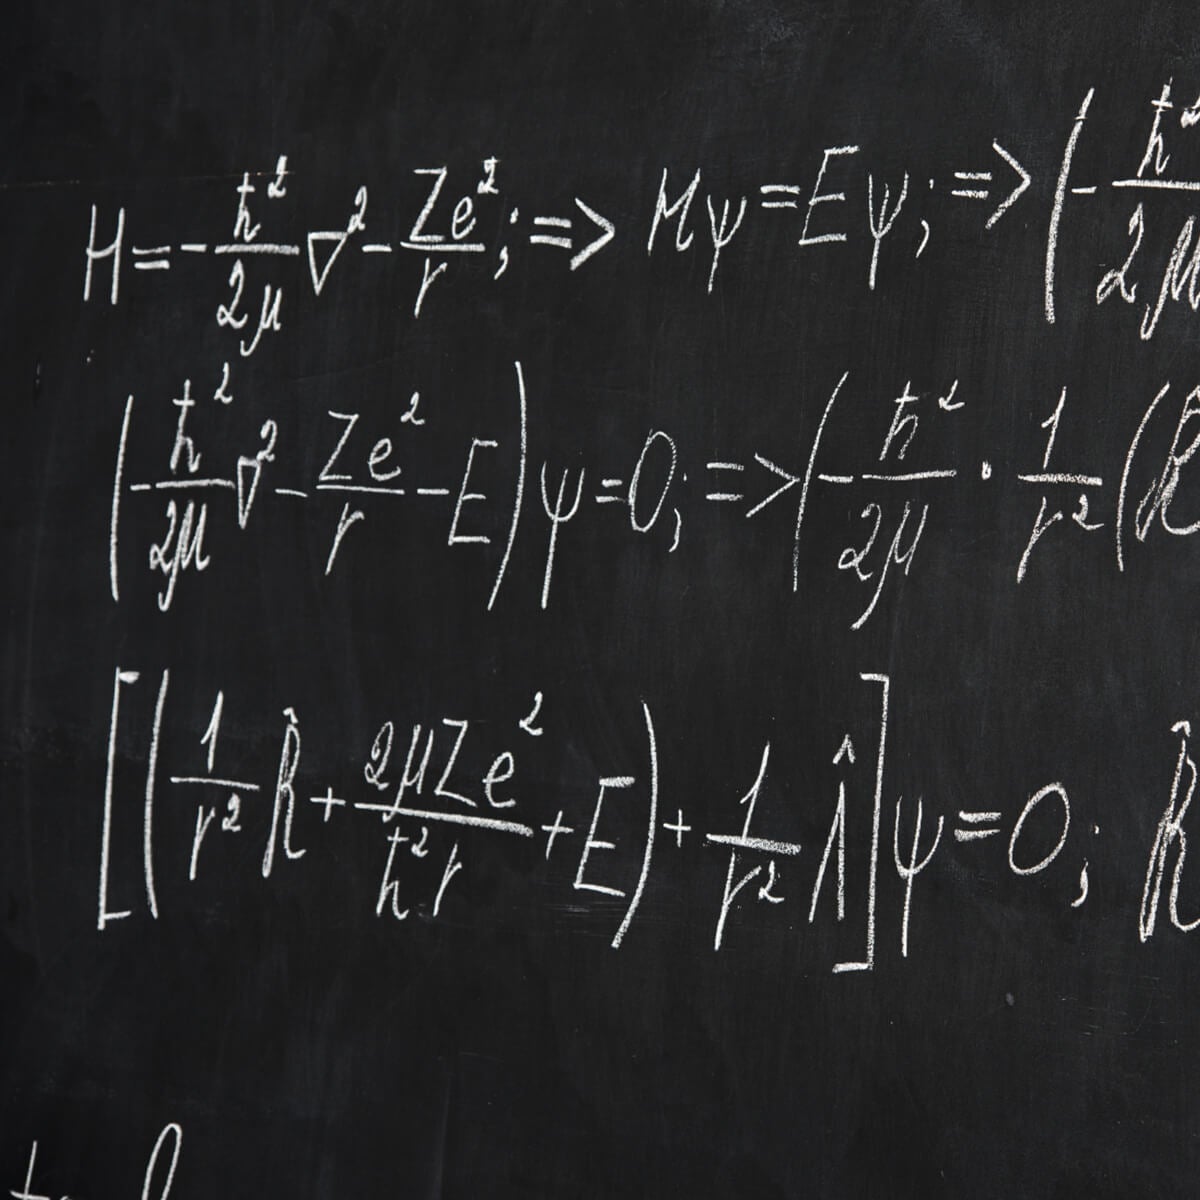 H = -ħ²/2μ ∇² - Ze²/r; => Hψ = Eψ; => (-ħ²/2μ
(-ħ²/2μ ∇² - Ze²/r - E)ψ = 0; => (-ħ²/2μ · 1/r² (R̂
[(1/r² R̂ + 2μZe²/ħ²r + E) + 1/r² Λ̂]ψ = 0; R̂